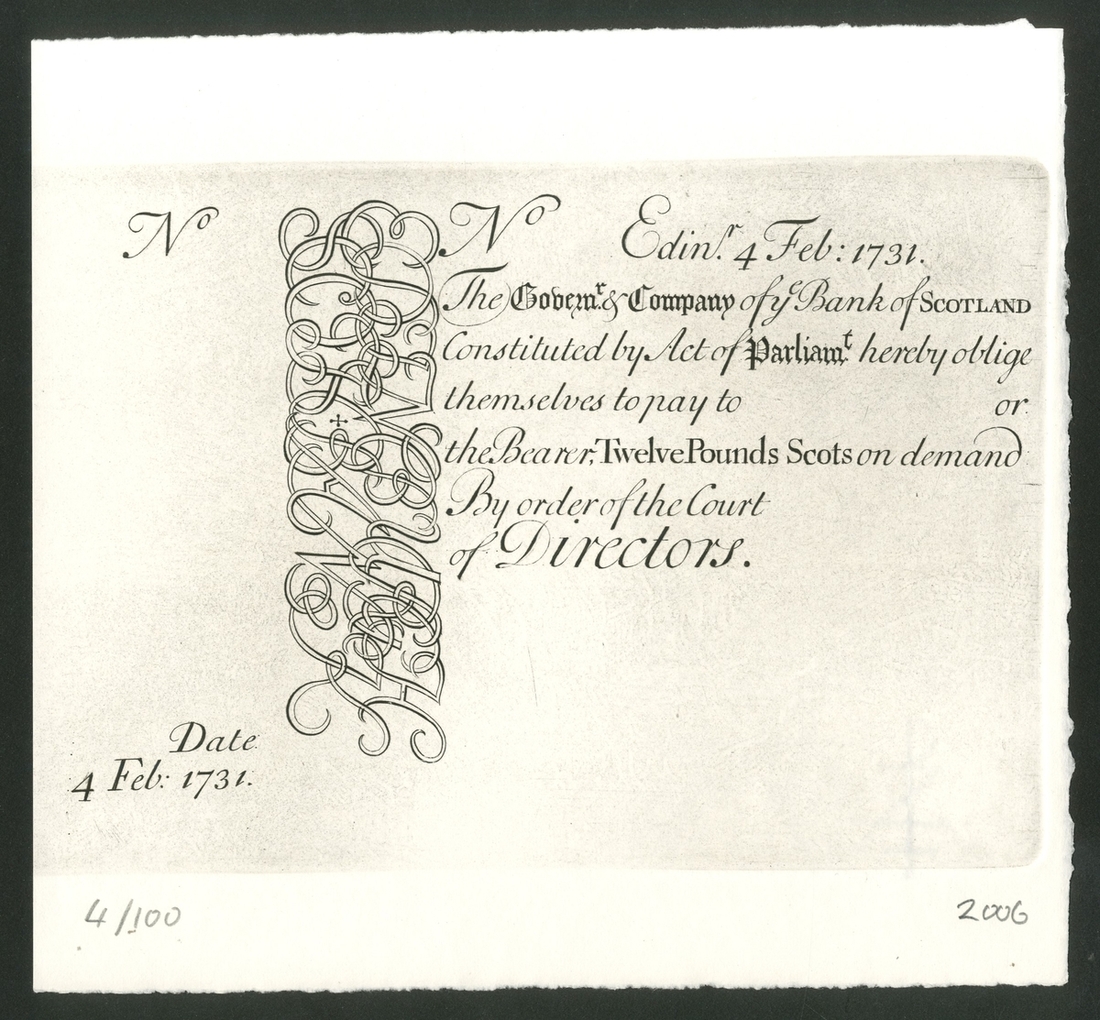 Nº
Nº Edinʳ. 4 Feb: 1731.
The Governʳ. & Company of yᵉ Bank of SCOTLAND
Constituted by Act of Parliamᵗ. hereby oblige
themselves to pay to or
the Bearer, Twelve Pounds Scots on demand
By order of the Court
of Directors.
Date
4 Feb: 1731.
4/100 2006